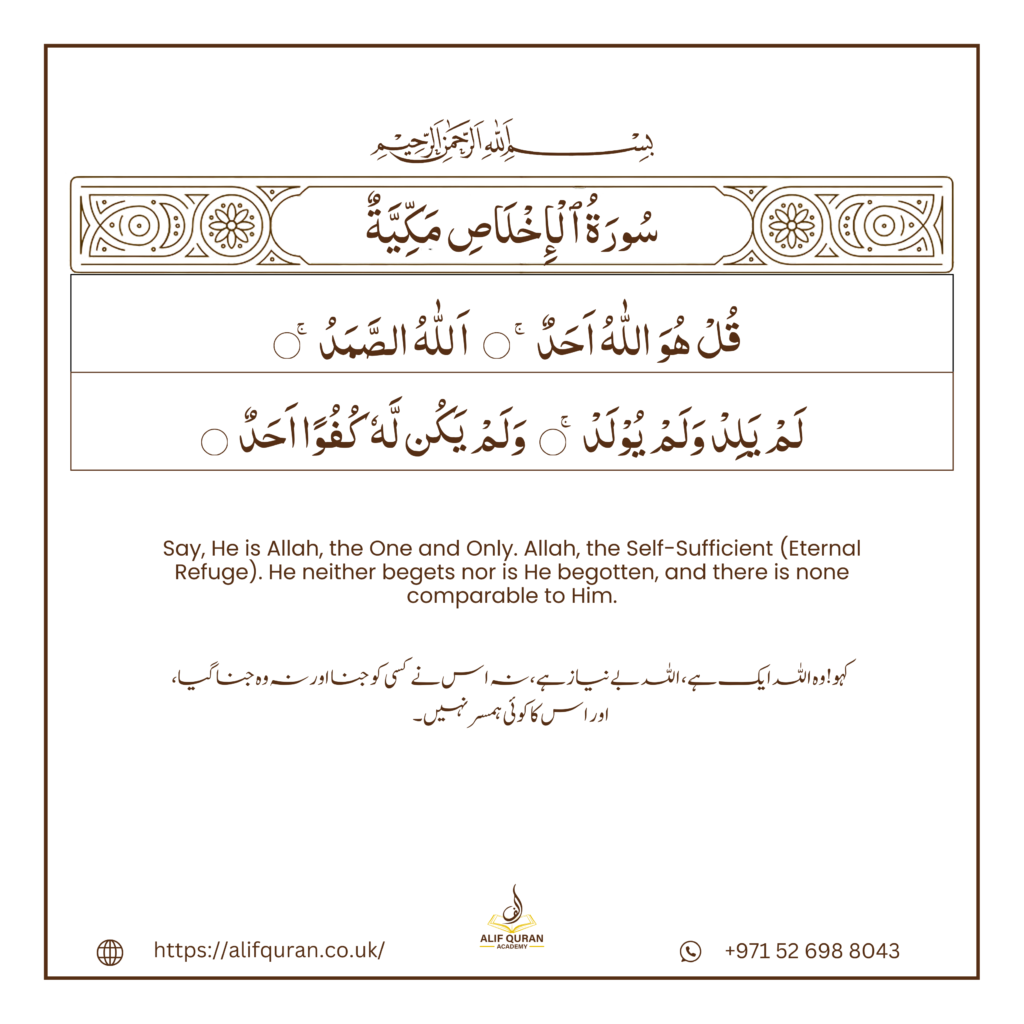 بِسْمِ اللهِ الرَّحْمٰنِ الرَّحِيْمِ
سُورَةُ ٱلْإِخْلَاصِ مَكِّيَّةٌ
قُلْ هُوَ اللّٰهُ اَحَدٌ ۚ ۝ اَللّٰهُ الصَّمَدُ ۚ ۝
لَمْ يَلِدْ وَلَمْ يُوْلَدْ ۚ ۝ وَلَمْ يَكُن لَّهٗ كُفُوًا اَحَدٌ ۝
Say, He is Allah, the One and Only. Allah, the Self-Sufficient (Eternal
Refuge). He neither begets nor is He begotten, and there is none
comparable to Him.
کہو! وہ اللہ ایک ہے، اللہ بے نیاز ہے، نہ اس نے کسی کو جنا اور نہ وہ جنا گیا،
اور اس کا کوئی ہمسر نہیں۔
الف
ALIF QURAN
ACADEMY
https://alifquran.co.uk/
+971 52 698 8043